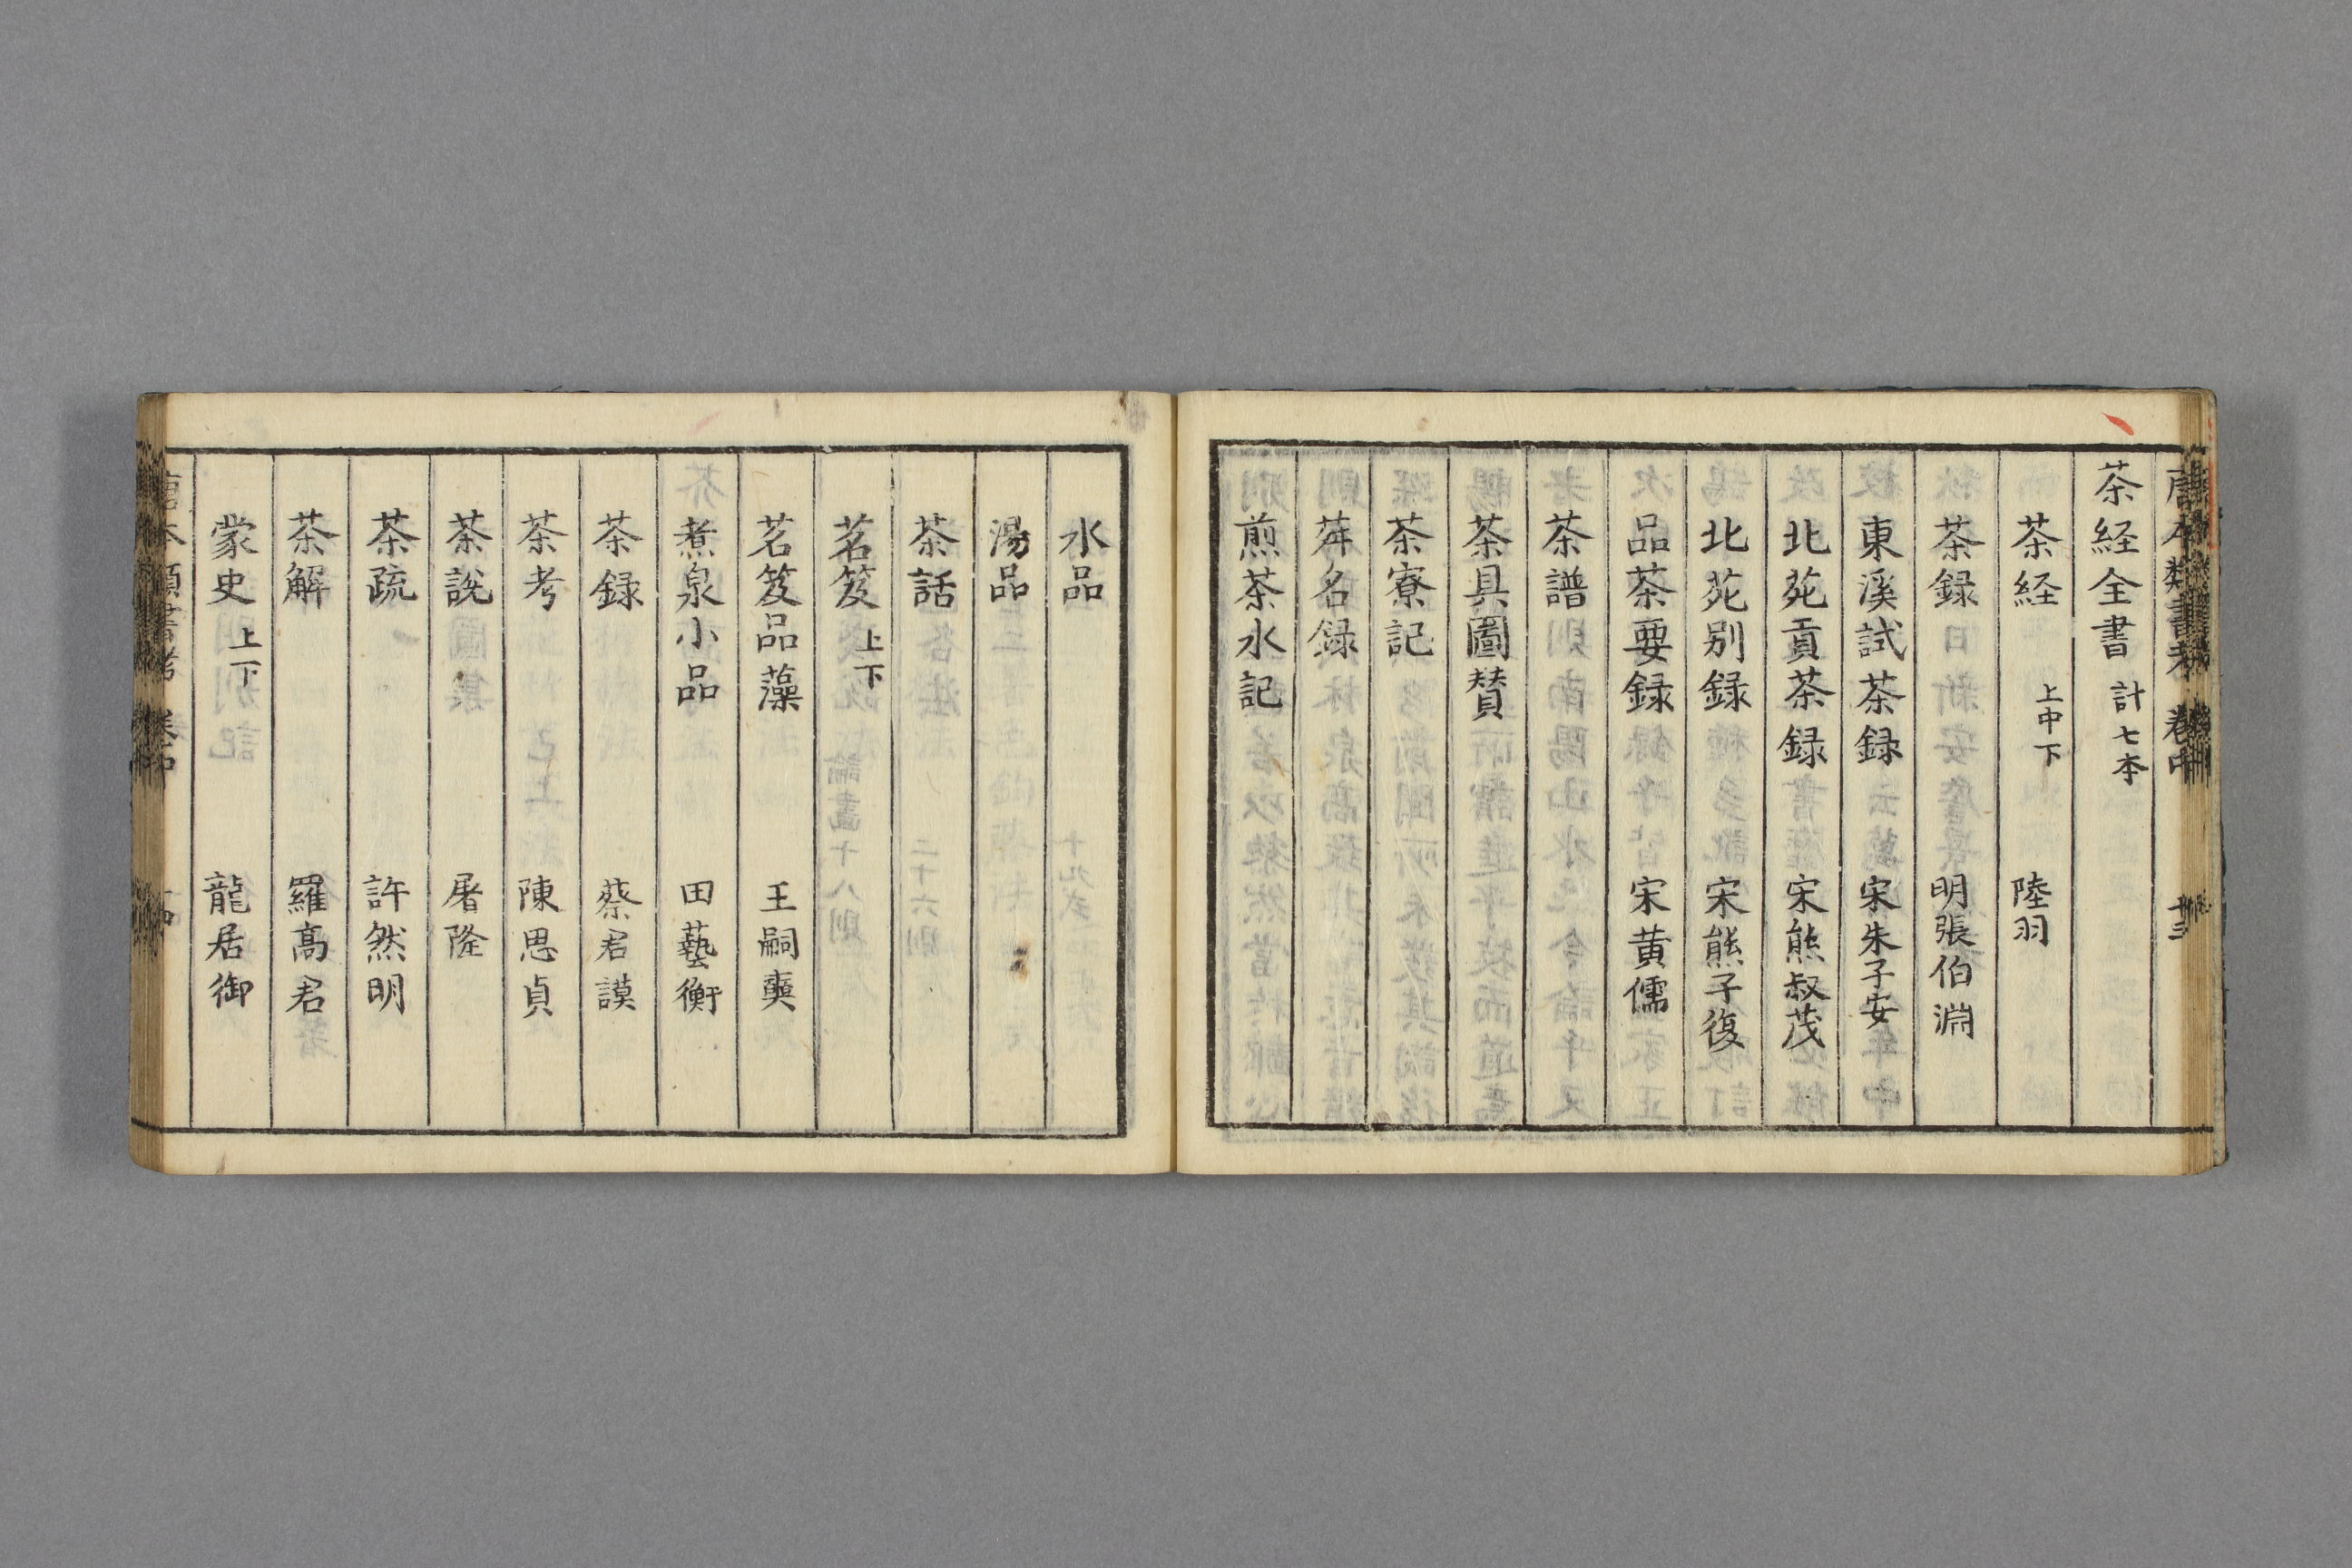 茶経全書 計七本
茶経 上中下 陸羽
茶録 明張伯淵
東溪試茶録 宋朱子安
北苑貢茶録 宋熊叔茂
北苑别録 宋熊子復
品茶要録 宋黄儒
茶譜
茶具圖賛
茶寮記
荈名録
煎茶水記
水品
湯品
茶話
茗笈 上下
茗笈品藻 王嗣奭
煮泉小品 田藝衡
茶録 蔡君謨
茶考 陳思貞
茶説 屠隆
茶疏 許然明
茶解 羅高君
蒙史 上下 龍居御